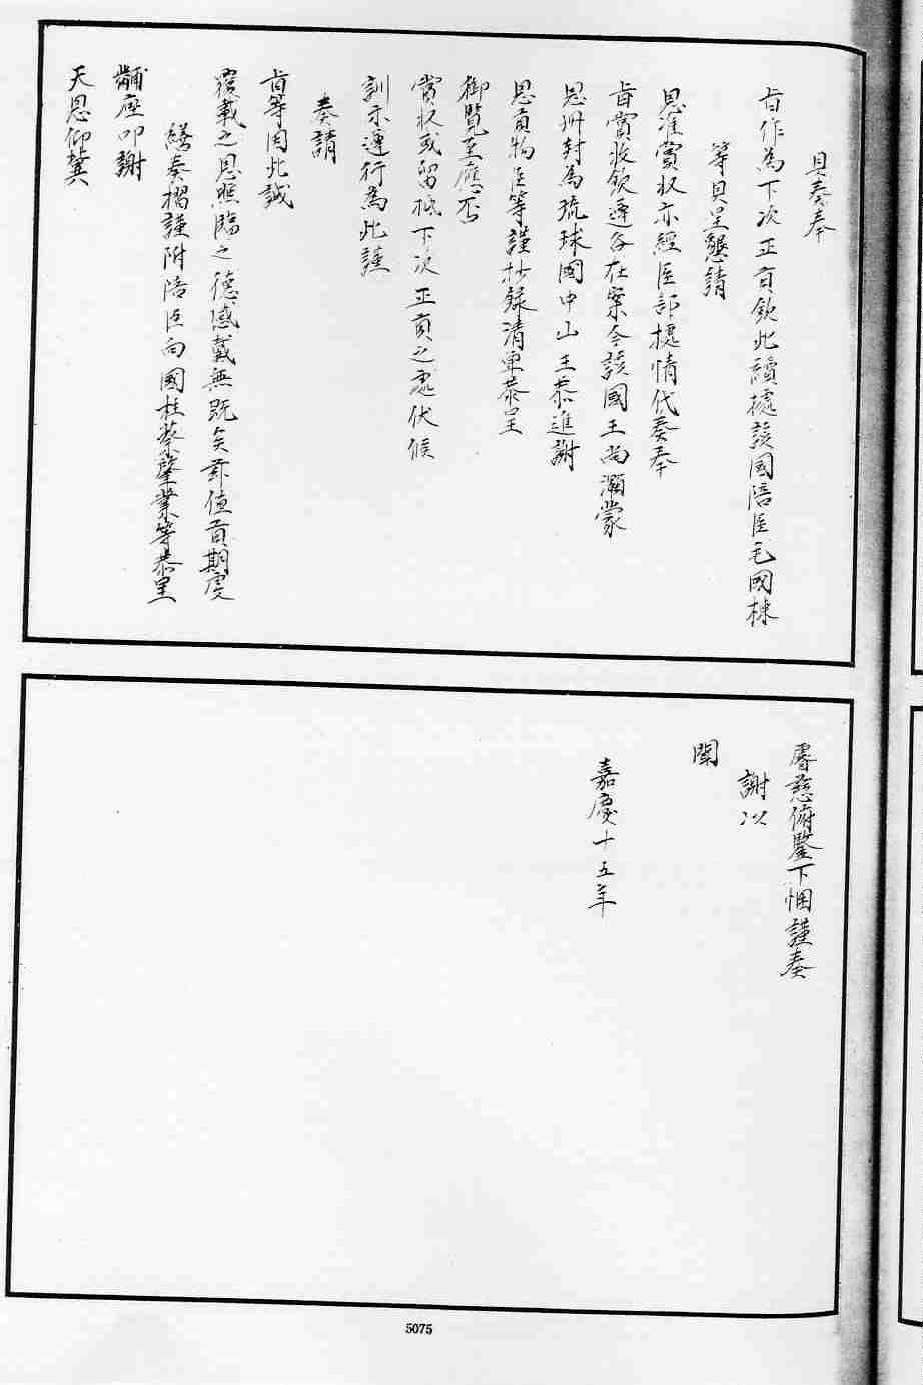 具奏奉
旨作為下次正貢欽此續據該國陪臣毛國棟
等具呈懇請
恩准賞收亦經臣部據情代奏奉
旨賞收欽遵各在案今該國王尚灝蒙
恩冊封為琉球國中山王恭進謝
恩貢物臣等謹抄錄清單恭呈
御覽至應否
賞收或留抵下次正貢之處伏候
訓示遵行為此謹
奏請
旨等因此誠
覆載之恩照臨之德感戴無既矣茲值貢期虔
繕奏摺謹附陪臣向國柱蔡肇業等恭呈
黼座叩謝
天恩仰冀
睿慈俯鑒下悃謹奏
謝以
聞
嘉慶十五年
5075